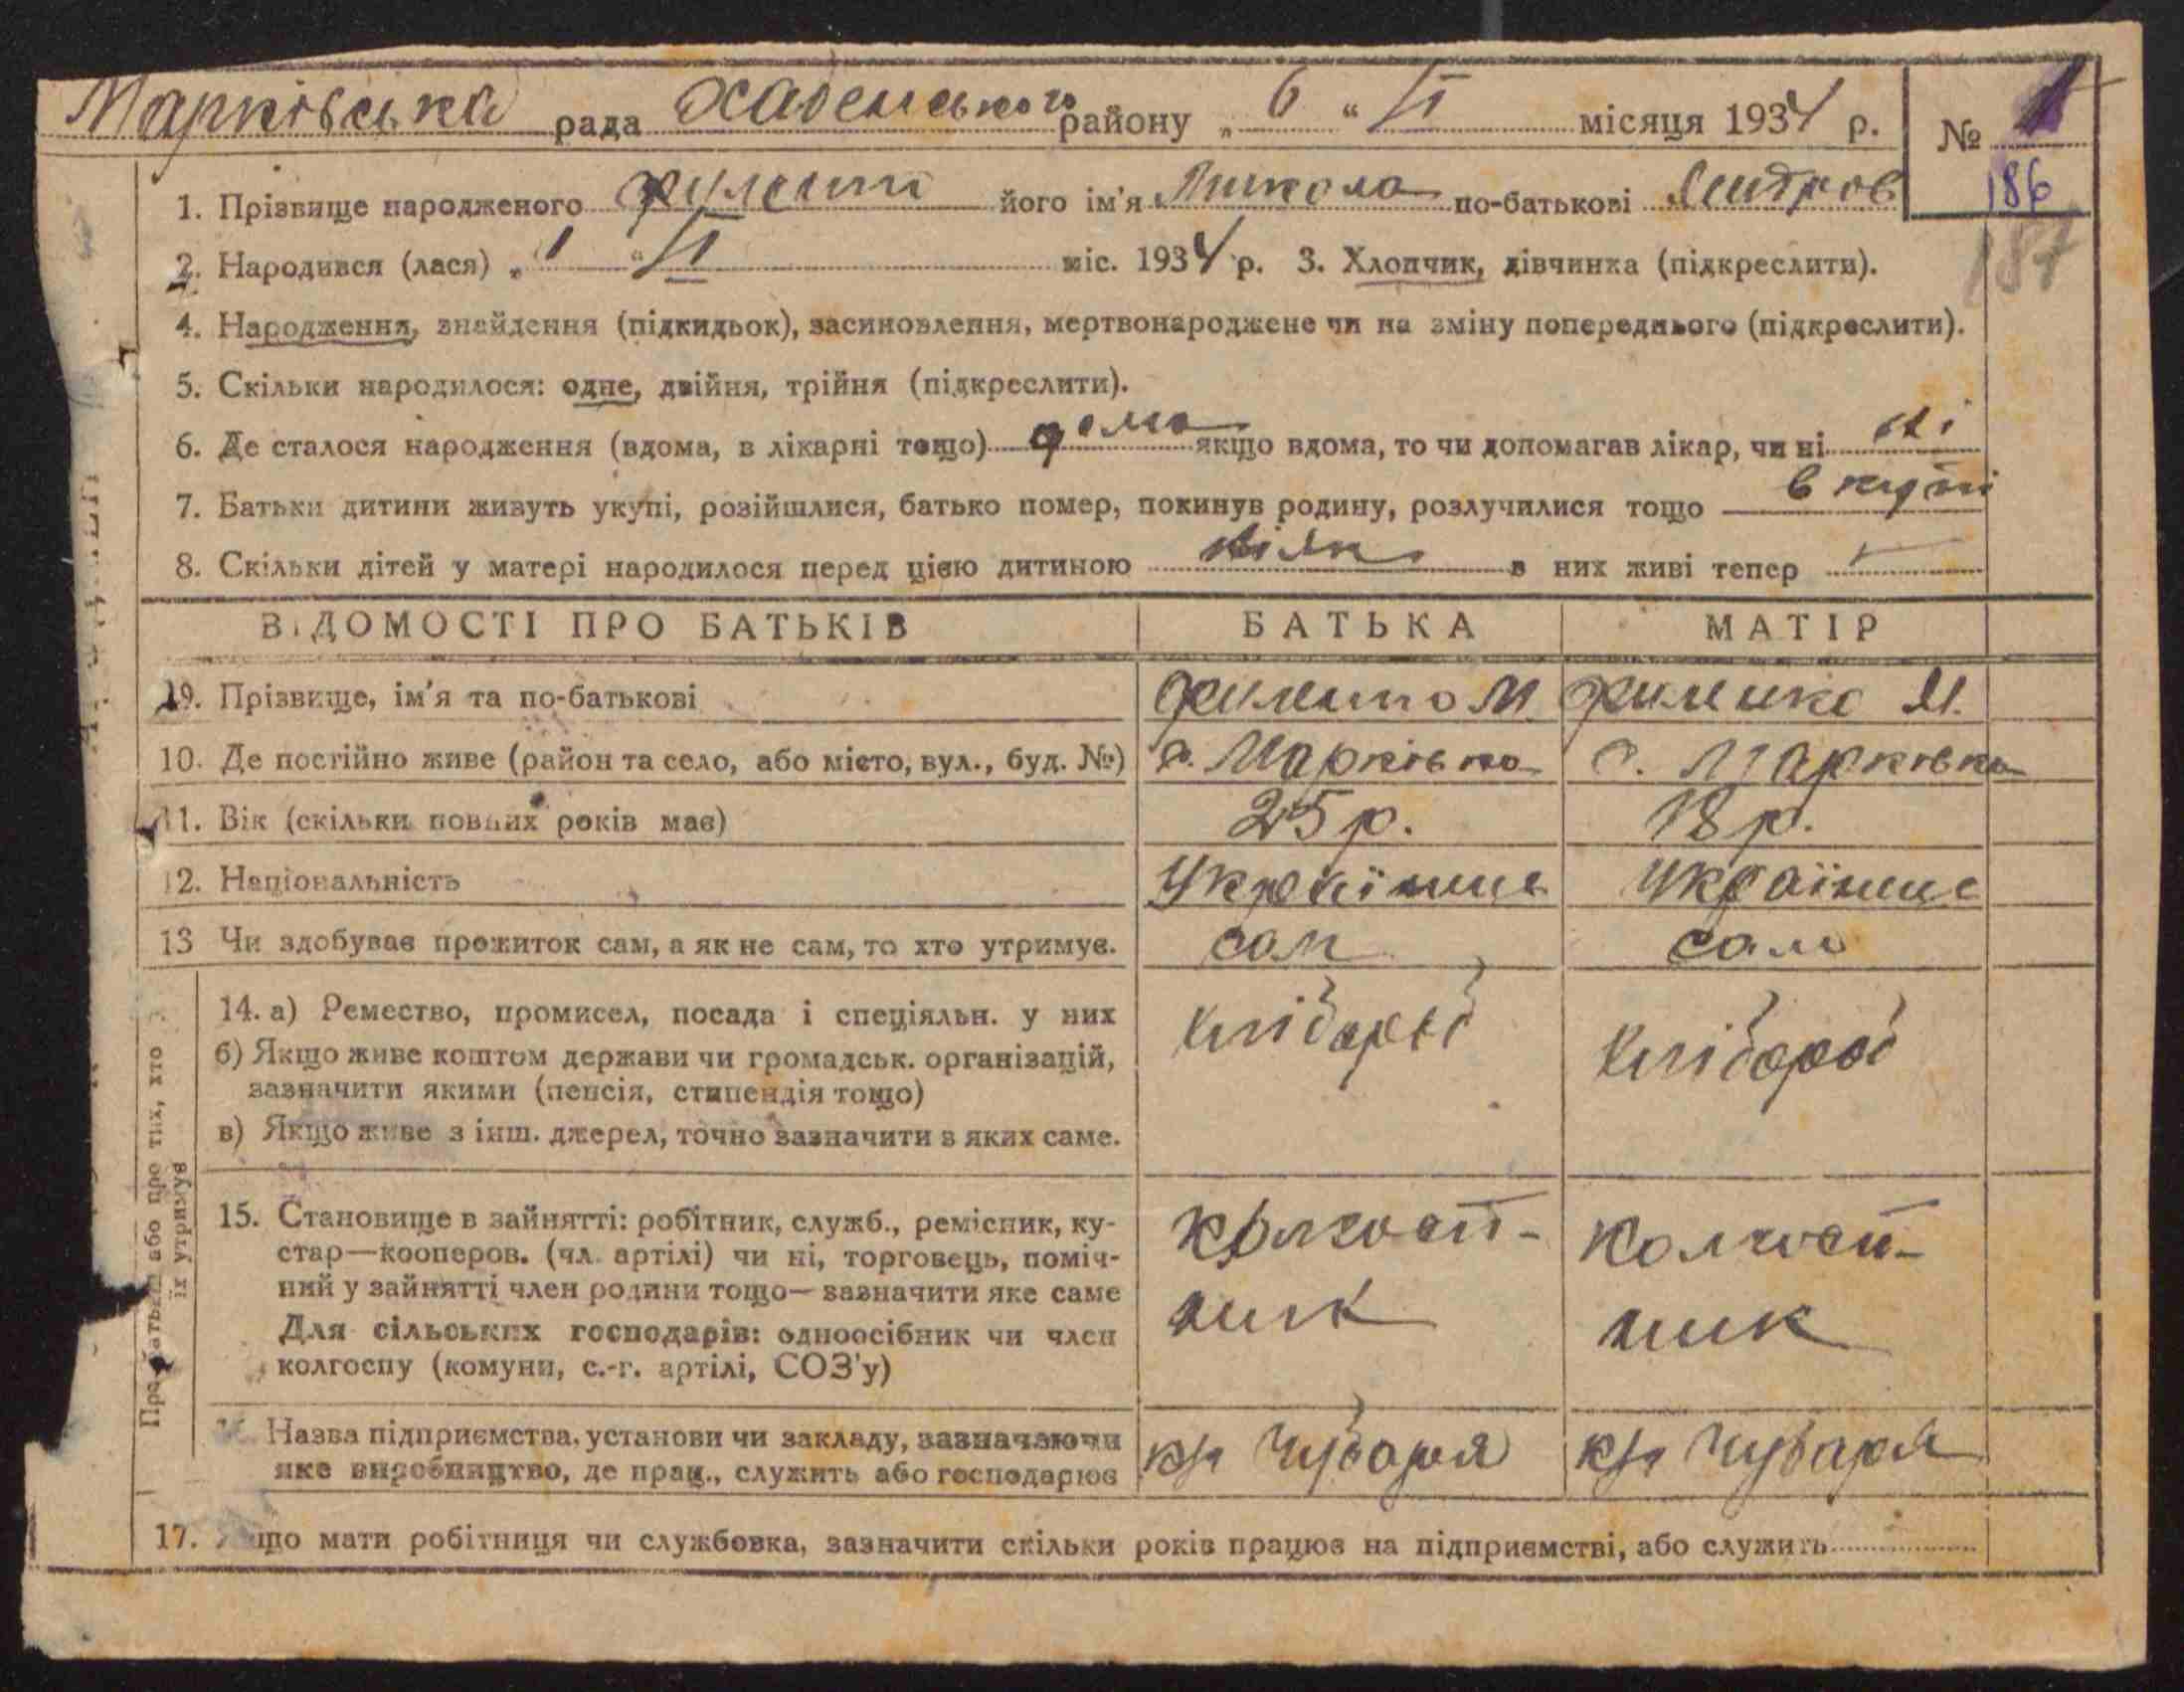 Марківська рада Хабенського району „ 6 “ VI місяця 1934 р. № 1
186
187
1. Прізвище народженого його ім'я Микола по-батькові Дмитров
2. Народився (лася) „ 1 “ VI міс. 1934 р. 3. Хлопчик, дівчинка (підкреслити).
4. Народження, знайдення (підкидьок), засиновлення, мертвонароджене чи на зміну попереднього (підкреслити).
5. Скільки народилося: одне, двійня, трійня (підкреслити).
6. Де сталося народження (вдома, в лікарні тощо) дома якщо вдома, то чи допомагав лікар, чи ні ні
7. Батьки дитини живуть укупі, розійшлися, батько помер, покинув родину, розлучилися тощо вкупі
8. Скільки дітей у матері народилося перед цією дитиною в них живі тепер –
ВІДОМОСТІ ПРО БАТЬКІВ БАТЬКА МАТІР
19. Прізвище, ім'я та по-батькові
10. Де постійно живе (район та село, або місто, вул., буд. №) с. Марківка с. Марківка
11. Вік (скільки повних років має) 25 р. 18 р.
12. Національність Українець Українце
13 Чи здобуває прожиток сам, а як не сам, то хто утримує. сам сама
Про батьків або про тих, хто
їх утримує
14. а) Ремество, промисел, посада і спеціяльн. у них хлібороб хлібороб
б) Якщо живе коштом держави чи громадськ. організацій,
зазначити якими (пенсія, стипендія тощо)
в) Якщо живе з інш. джерел, точно зазначити з яких саме.
15. Становище в зайнятті: робітник, служб., ремісник, ку- Колгосп- Колгосп-
стар—кооперов. (чл. артілі) чи ні, торговець, поміч-
ний у зайнятті член родини тощо—зазначити яке саме ник ник
Для сільських господарів: одноосібник чи член
колгоспу (комуни, с.-г. артілі, СОЗ'у)
Назва підприємства, установи чи закладу, зазначаючи к/г Чубаря к/г Чубаря
яке виробництво, де прац., служить або господарює
17. Якщо мати робітниця чи службовка, зазначити скільки років працює на підприємстві, або служить